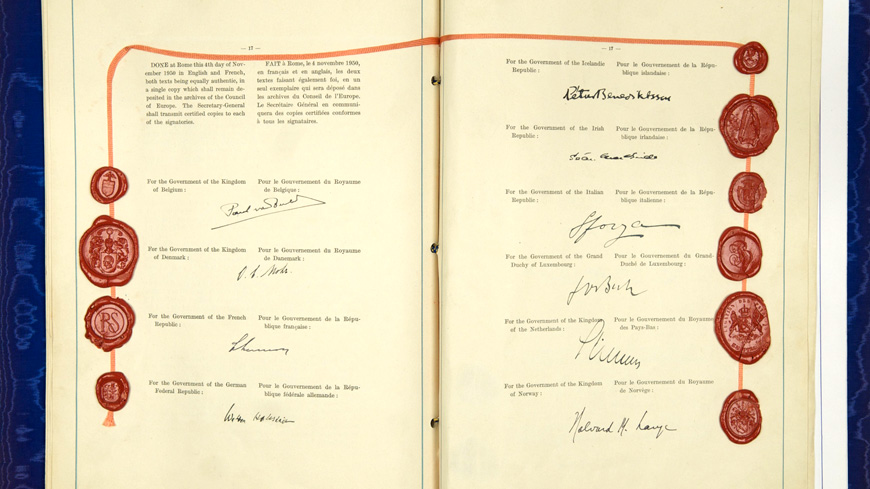 — 17 —
DONE at Rome this 4th day of Nov-
ember 1950 in English and French,
both texts being equally authentic, in
a single copy which shall remain de-
posited in the archives of the Council
of Europe. The Secretary-General
shall transmit certified copies to each
of the signatories.
FAIT à Rome, le 4 novembre 1950,
en français et en anglais, les deux
textes faisant également foi, en un
seul exemplaire qui sera déposé dans
les archives du Conseil de l'Europe.
Le Secrétaire Général en communi-
quera des copies certifiées conformes
à tous les signataires.
For the Government of the Kingdom
of Belgium :
Pour le Gouvernement du Royaume
de Belgique :
Paul van
For the Government of the Kingdom
of Denmark :
Pour le Gouvernement du Royaume
de Danemark :
O. C. Mohr.
For the Government of the French
Republic :
Pour le Gouvernement de la Répu-
blique française :
RS
For the Government of the German
Federal Republic :
Pour le Gouvernement de la Répu-
blique fédérale allemande :
Walter Hallstein
— 17 —
For the Government of the Icelandic
Republic :
Pour le Gouvernement de la Répu-
blique islandaise :
Pétur Benediktsson
For the Government of the Irish
Republic :
Pour le Gouvernement de la Répu-
blique irlandaise :
For the Government of the Italian
Republic :
Pour le Gouvernement de la Répu-
blique italienne :
Sforza
For the Government of the Grand
Duchy of Luxembourg :
Pour le Gouvernement du Grand-
Duché de Luxembourg :
Jos Bech
For the Government of the Kingdom
of the Netherlands :
Pour le Gouvernement du Royaume
des Pays-Bas :
For the Government of the Kingdom
of Norway :
Pour le Gouvernement du Royaume
de Norvège :
Halvard M. Lange